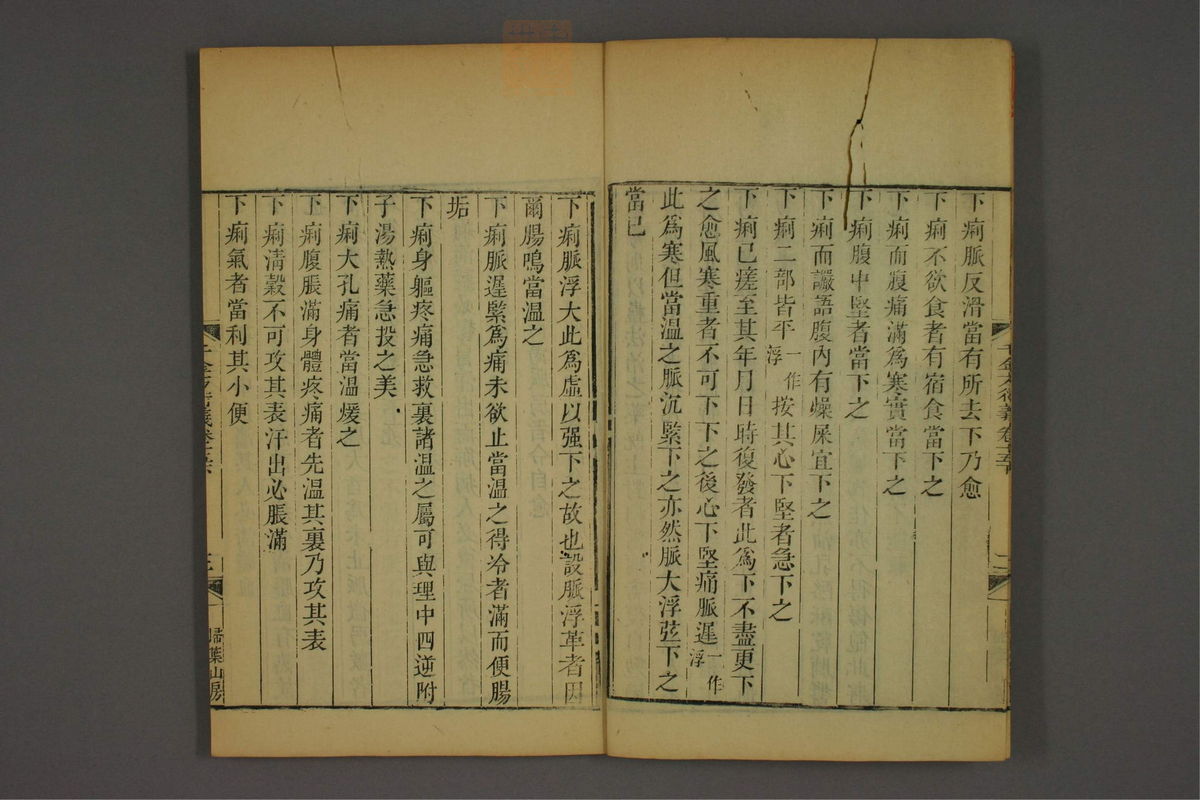 下痢脈反滑當有所去下乃愈
下痢不欲食者有宿食當下之
下痢而腹痛滿爲寒實當下之
下痢腹中堅者當下之
下痢而讝語腹內有燥屎宜下之
下痢二部皆平一作浮按其心下堅者急下之
下痢已瘥至其年月日時復發者此爲下不盡更下
之愈風寒重者不可下下之後心下堅痛脈遲一作浮
此爲寒但當溫之脈沉緊下之亦然脈大浮弦下之
當已
下痢脈浮大此爲虛以强下之故也設脈浮革者因
爾腸鳴當溫之
下痢脈遲緊爲痛未欲止當溫之得冷者滿而便腸
垢
下痢身軀疼痛急救裏諸溫之屬可與理中四逆附
子湯熱藥急投之美
下痢大孔痛者當溫煖之
下痢腹脹滿身體疼痛者先溫其裏乃攻其表
下痢清穀不可攻其表汗出必脹滿
下痢氣者當利其小便
三
掃葉山房